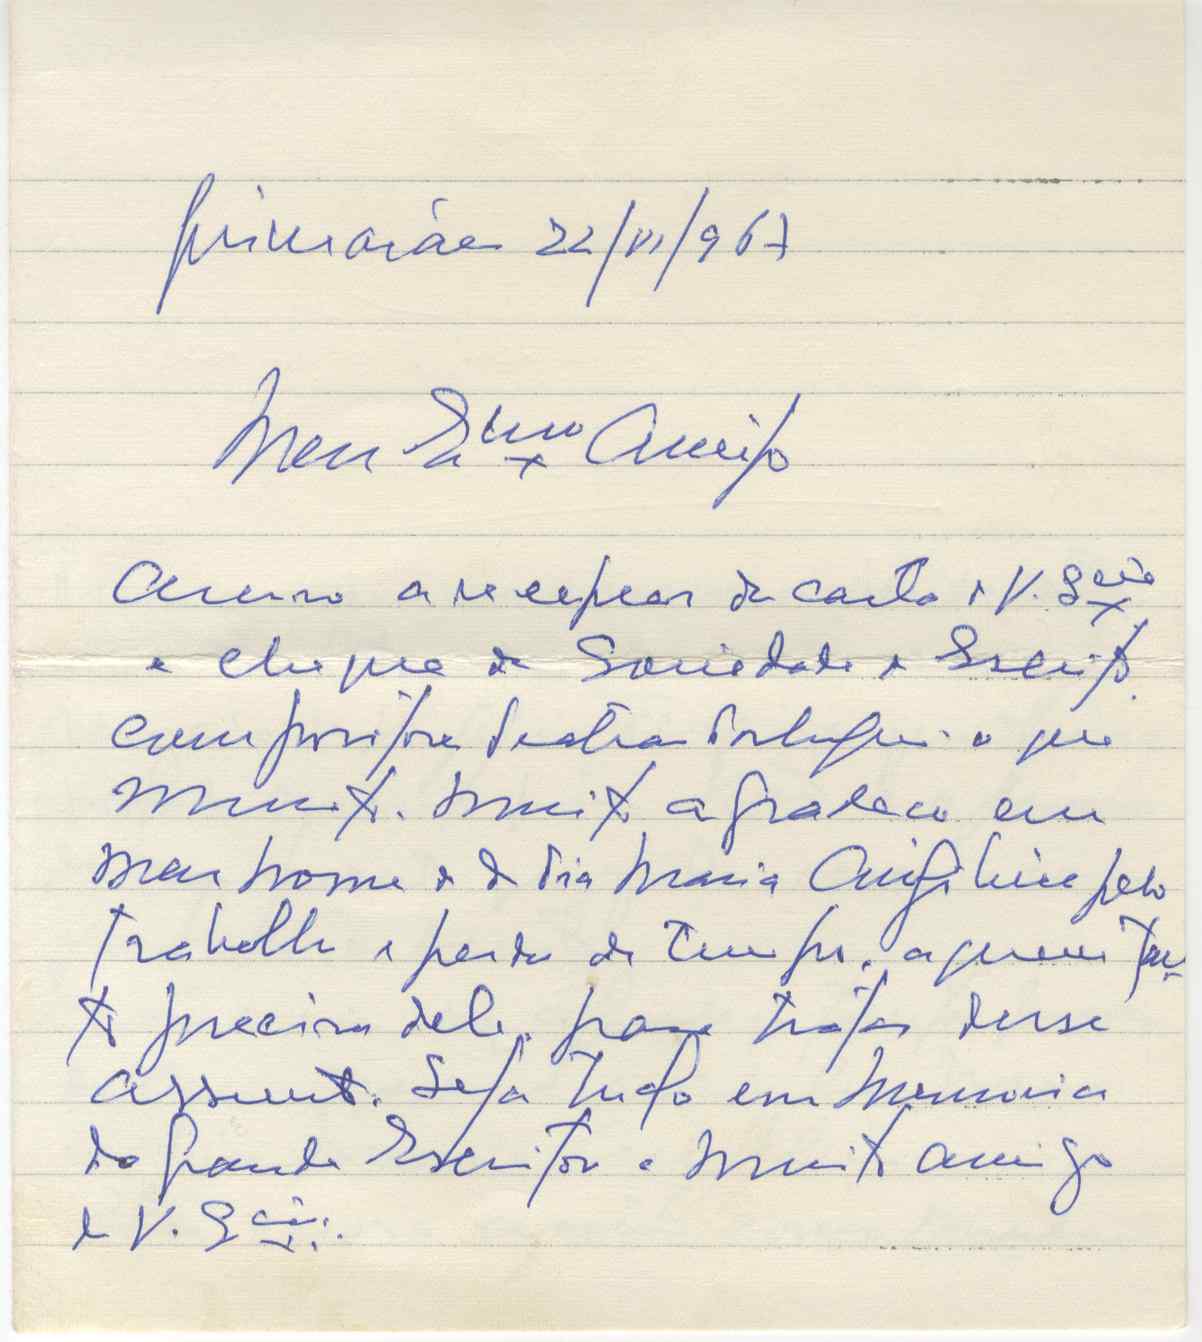 Guimarães 22/VI/967
Meu Exmo Amigo
Acuso a recepção da carta de V. Excia
e cheque da Sociedade de Escrit.
Compositores Teatrais Portugueses o que
muito. muito agradeço em
meu nome e da Tia Maria pelo
trabalho e perda de tempo. a quem tan-
to precisa dele. para tratar desse
assunto. Seja tudo em Memoria
do grande Escritor e muito amigo
de V. Excia.